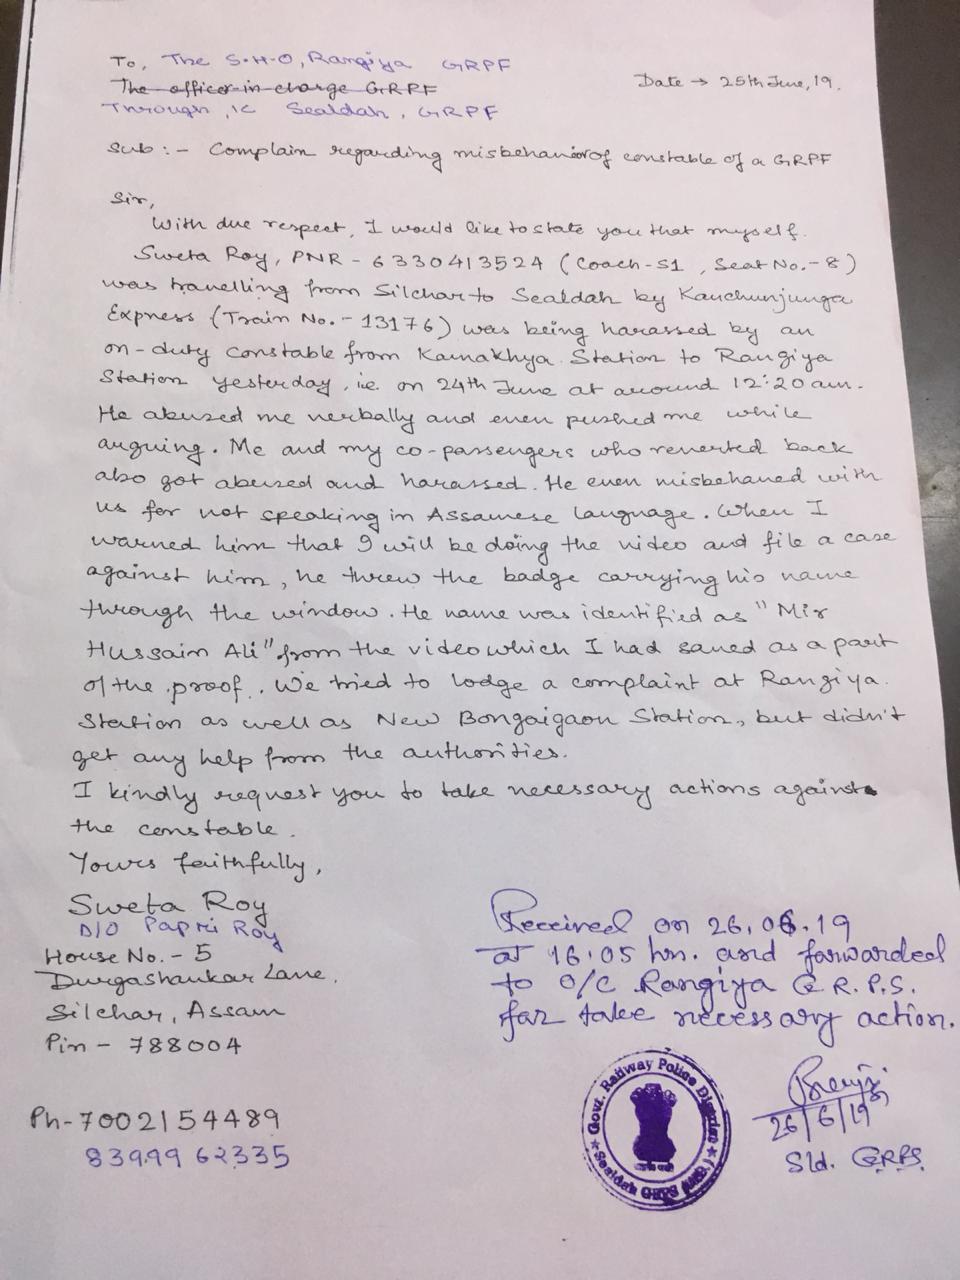 To, The S.H.O, Rangiya GRPF
The officer-in-charge GRPF
Date → 25th June, 19.
Through, IC Sealdah, GRPF
Sub :- Complain regarding misbehavior of constable of a GRPF
Sir,
With due respect, I would like to state you that myself.
Sweta Roy, PNR - 6330413524 (Coach-S1, Seat No.-8)
was travelling from Silchar to Sealdah by Kanchunjunga
Express (Train No.-13176) was being harassed by an
on-duty constable from Kamakhya Station to Rangiya
Station yesterday, i.e. on 24th June at around 12:20 am.
He abused me verbally and even pushed me while
arguing. Me and my co-passengers who reverted back
also got abused and harassed. He even misbehaved with
us for not speaking in Assamese language. When I
warned him that I will be doing the video and file a case
against him, he threw the badge carrying his name
through the window. He name was identified as "Mir
Hussain Ali" from the video which I had saved as a part
of the proof. We tried to lodge a complaint at Rangiya
Station as well as New Bongaigaon Station, but didn't
get any help from the authorities.
I kindly request you to take necessary actions against
the constable.
Yours faithfully,
Sweta Roy
D/O Papri Roy
House No.- 5
Durgashankar Lane.
Silchar, Assam
Pin - 788004
Ph-7002154489
8399962335
Received on 26.06.19
at 16.05 hrs. and forwarded
to O/C Rangiya G.R.P.S.
for take necessary action.
26/6/19
Sld. G.R.P.S.
Govt. Railway Police District
Sealdah GRPS (W.B.)